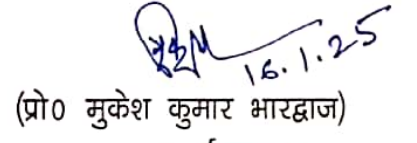 16.1.25
(प्रो० मुकेश कुमार भारद्वाज)